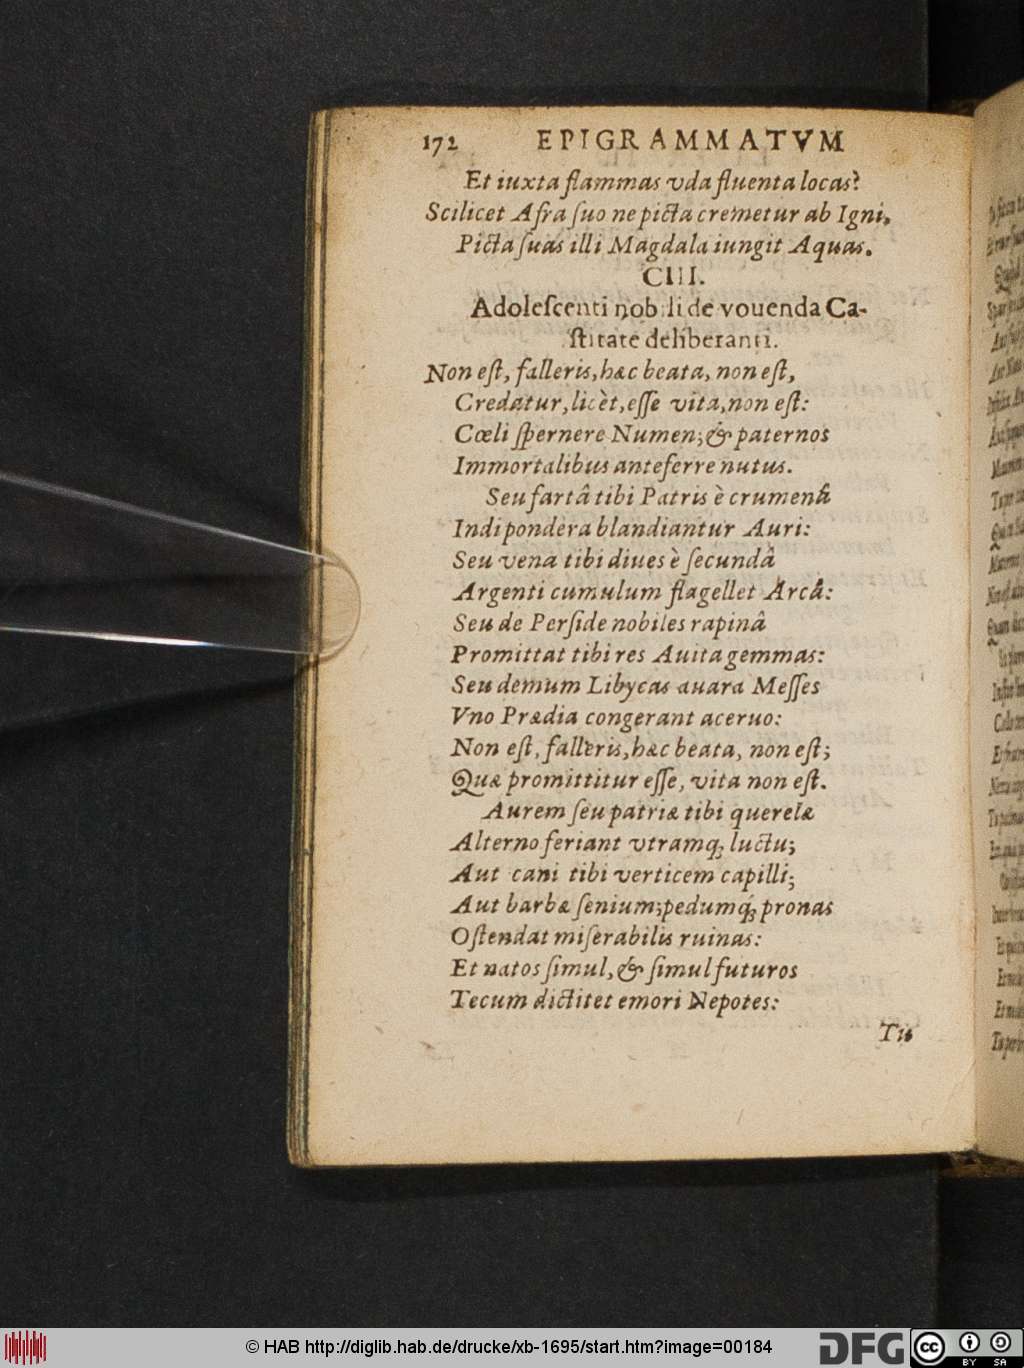 172 EPIGRAMMATVM
Et iuxta flammas vda fluenta locas?
Scilicet Afra ſuo ne picta cremetur ab Igni,
Picta ſuas illi Magdala iungit Aquas.
CIII.
Adoleſcenti nobili de vouenda Ca-
ſtitate deliberanti.
Non eſt, falleris, hæc beata, non eſt,
Credatur, licèt, eſſe vita, non eſt:
Cœli ſpernere Numen; & paternos
Immortalibus anteferre nutus.
Seu fartâ tibi Patris è crumenâ
Indi pondera blandiantur Auri:
Seu vena tibi diues è ſecundâ
Argenti cumulum flagellet Arcâ:
Seu de Perſide nobiles rapinâ
Promittat tibi res Auita gemmas:
Seu demum Libycas auara Meſſes
Vno Prædia congerant aceruo:
Non eſt, falleris, hæc beata, non eſt;
Quæ promittitur eſſe, vita non eſt.
Aurem ſeu patriæ tibi querelæ
Alterno feriant vtramq; luctu;
Aut cani tibi verticem capilli;
Aut barbæ ſenium; pedumq́; pronas
Oſtendat miſerabilis ruinas:
Et natos ſimul, & ſimul futuros
Tecum dictitet emori Nepotes:
Tu
© HAB http://diglib.hab.de/drucke/xb-1695/start.htm?image=00184
DFG
cc BY SA